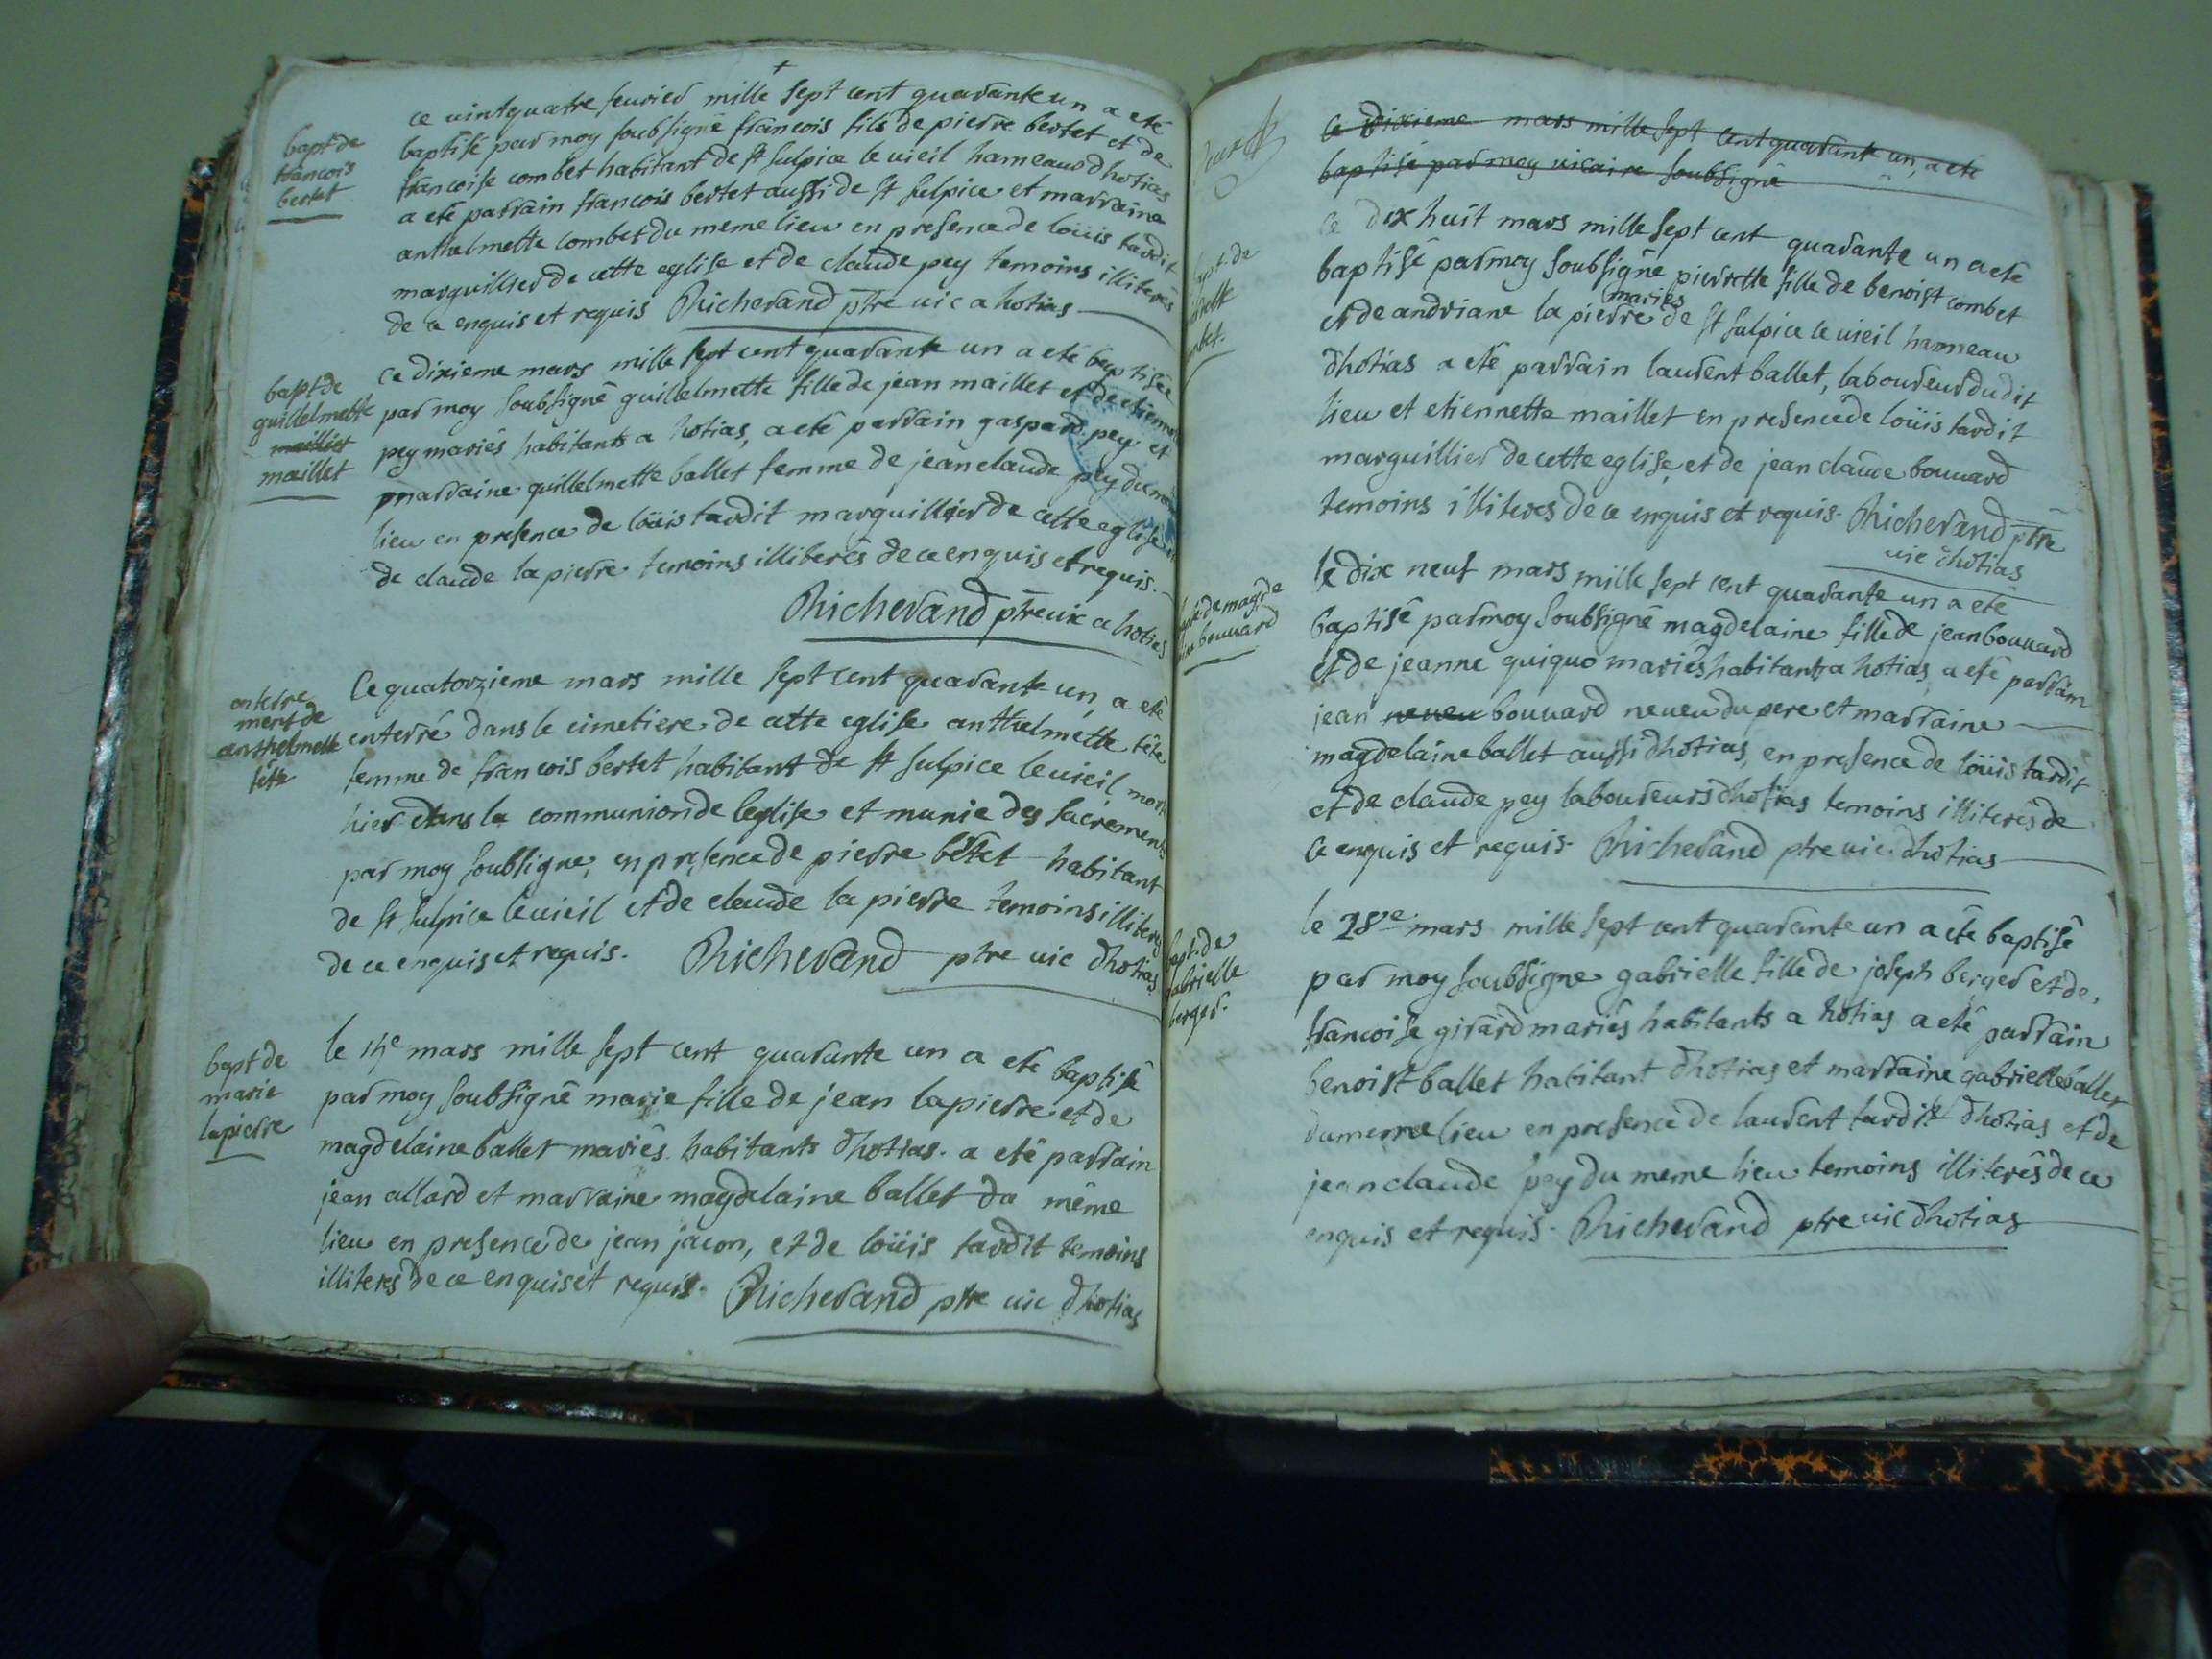 bapt de
francois
bertet
ce vintquatre fevrier mille sept cent quarante un a eté
baptisé par moy soubsigné francois fils de pierre bertet et de
francoise combet habitant de st sulpice le vieil hameaud dhotias
a eté parrain francois bertet aussi de st sulpice et marraine
anthelmette combet du meme lieu en presence de loüis tardit
marguillier de cette eglise et de claude pey temoins illiterés
de ce enquis et requis Richerand ptre vic a hotias
bapt de
guillelmette
maillet
maillet
ce dixieme mars mille sept cent quarante un a eté baptisée
par moy soubsigné guillelmette fille de jean maillet et de etienne
pey mariés habitants a hotias, a eté parrain gaspard pey et
marraine guillelmette ballet femme de jean claude pey du
lieu en presence de loüis tardit marguillier de cette eglise
de claude lapierre temoins illiterés de ce enquis et requis.
Richerand ptre vic a hotias
enterre
ment de
anthelmette
tête
Ce quatorzieme mars mille sept cent quarante un, a eté
enterré dans le cimetiere de cette eglise anthelmette tête
femme de francois bertet habitant de st sulpice le vieil, morte
hier dans la communion de leglise et munie des sacrements
par moy soubsigne, en presence de pierre bêtet habitant
de st sulpice le vieil et de claude la pierre temoins illiterés
de ce enquis et requis. Richerand ptre vic dhotias
bapt de
marie
lapierre
le 14e mars mille sept cent quarante un a eté baptisé
par moy soubsigné marie fille de jean lapierre et de
magdelaine ballet mariés habitants dhotias. a eté parrain
jean allard et marraine magdelaine ballet du même
lieu en presence de jean jacon, et de loüis tardit temoins
illiterés de ce enquis et requis. Richerand ptre vic dhotias
ce dixieme mars mille sept cent quarante un, a eté
baptisé par moy vicaire soubsigné
ce dix huit mars mille sept cent quarante un a eté
baptisé par moy soubsigné pierrette fille de benoist combet
et de andriane la pierre mariés de st sulpice le vieil hameau
dhotias a eté parrain laurent ballet, laboureur dudit
lieu et etiennette maillet en presence de loüis tardit
marguillier de cette eglise, et de jean claude bouvard
temoins illiterés de ce enquis et requis. Richerand ptre
vic dhotias
bapt de magde
laine bouvard
le dix neuf mars mille sept cent quarante un a eté
baptisé par moy soubsigné magdelaine fille de jean bouvard
et de jeanne quiquo mariés habitant a hotias a eté parrain
jean neveu bouvard neveu du pere et marraine
magdelaine ballet aussi dhotias, en presence de loüis tardit
et de claude pey laboureurs dhotias temoins illiterés de
ce enquis et requis. Richerand ptre vic. dhotias
bapt. de
gabrielle
berger.
le 28e mars mille sept cent quarante un a eté baptisé
par moy soubsigne gabrielle fille de joseph berger et de,
francoise girard mariés habitants a hotias a eté parrain
benoist ballet habitant dhotias et marraine gabrielle ballet
du meme lieu en presence de laurent tardit dhotias et de
jean claude pey du meme lieu temoins illiterés de ce
enquis et requis. Richerand ptre vic dhotias